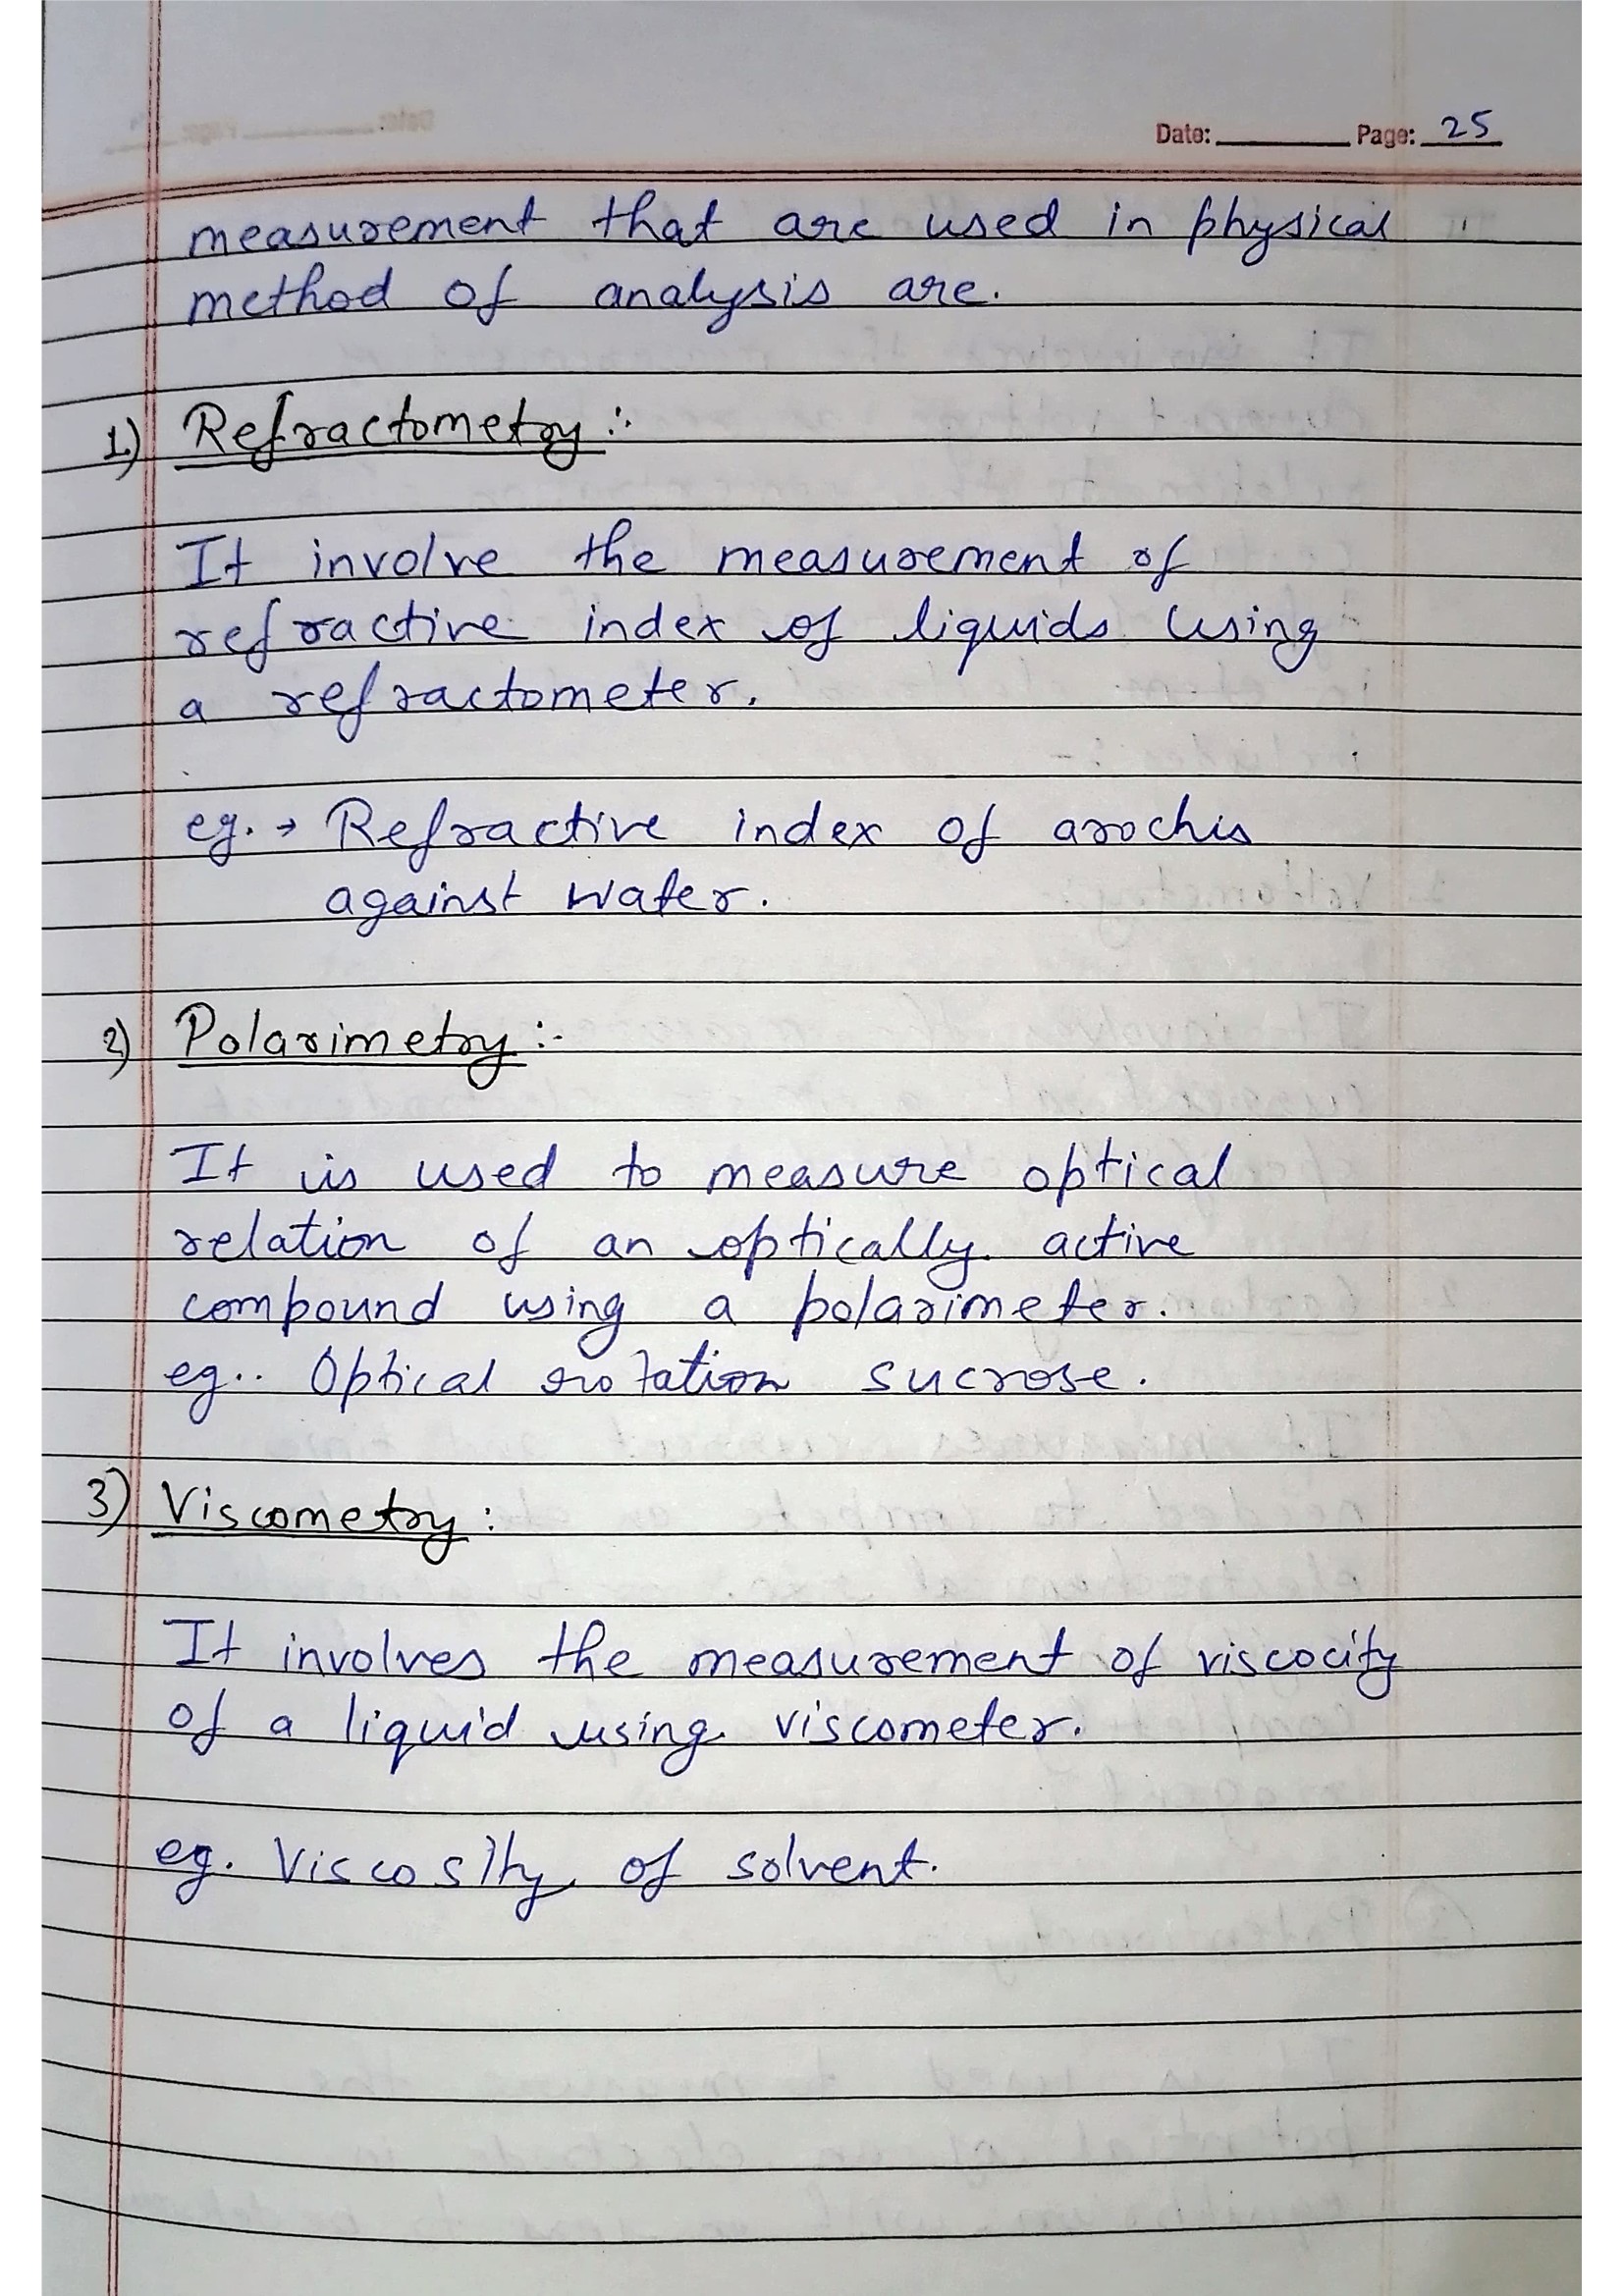 Date: Page: 25
measurement that are used in physical
method of analysis are.
1.) Refractometry :-
It involve the measurement of
refractive index of liquids using
a refractometer.
eg. → Refractive index of arochis
against water.
2) Polarimetry :-
It is used to measure optical
relation of an optically active
compound using a polarimeter.
eg.. Optical rotation sucrose.
3) Viscometry :
It involves the measurement of viscocity
of a liquid using viscometer.
eg. Viscosity of solvent.